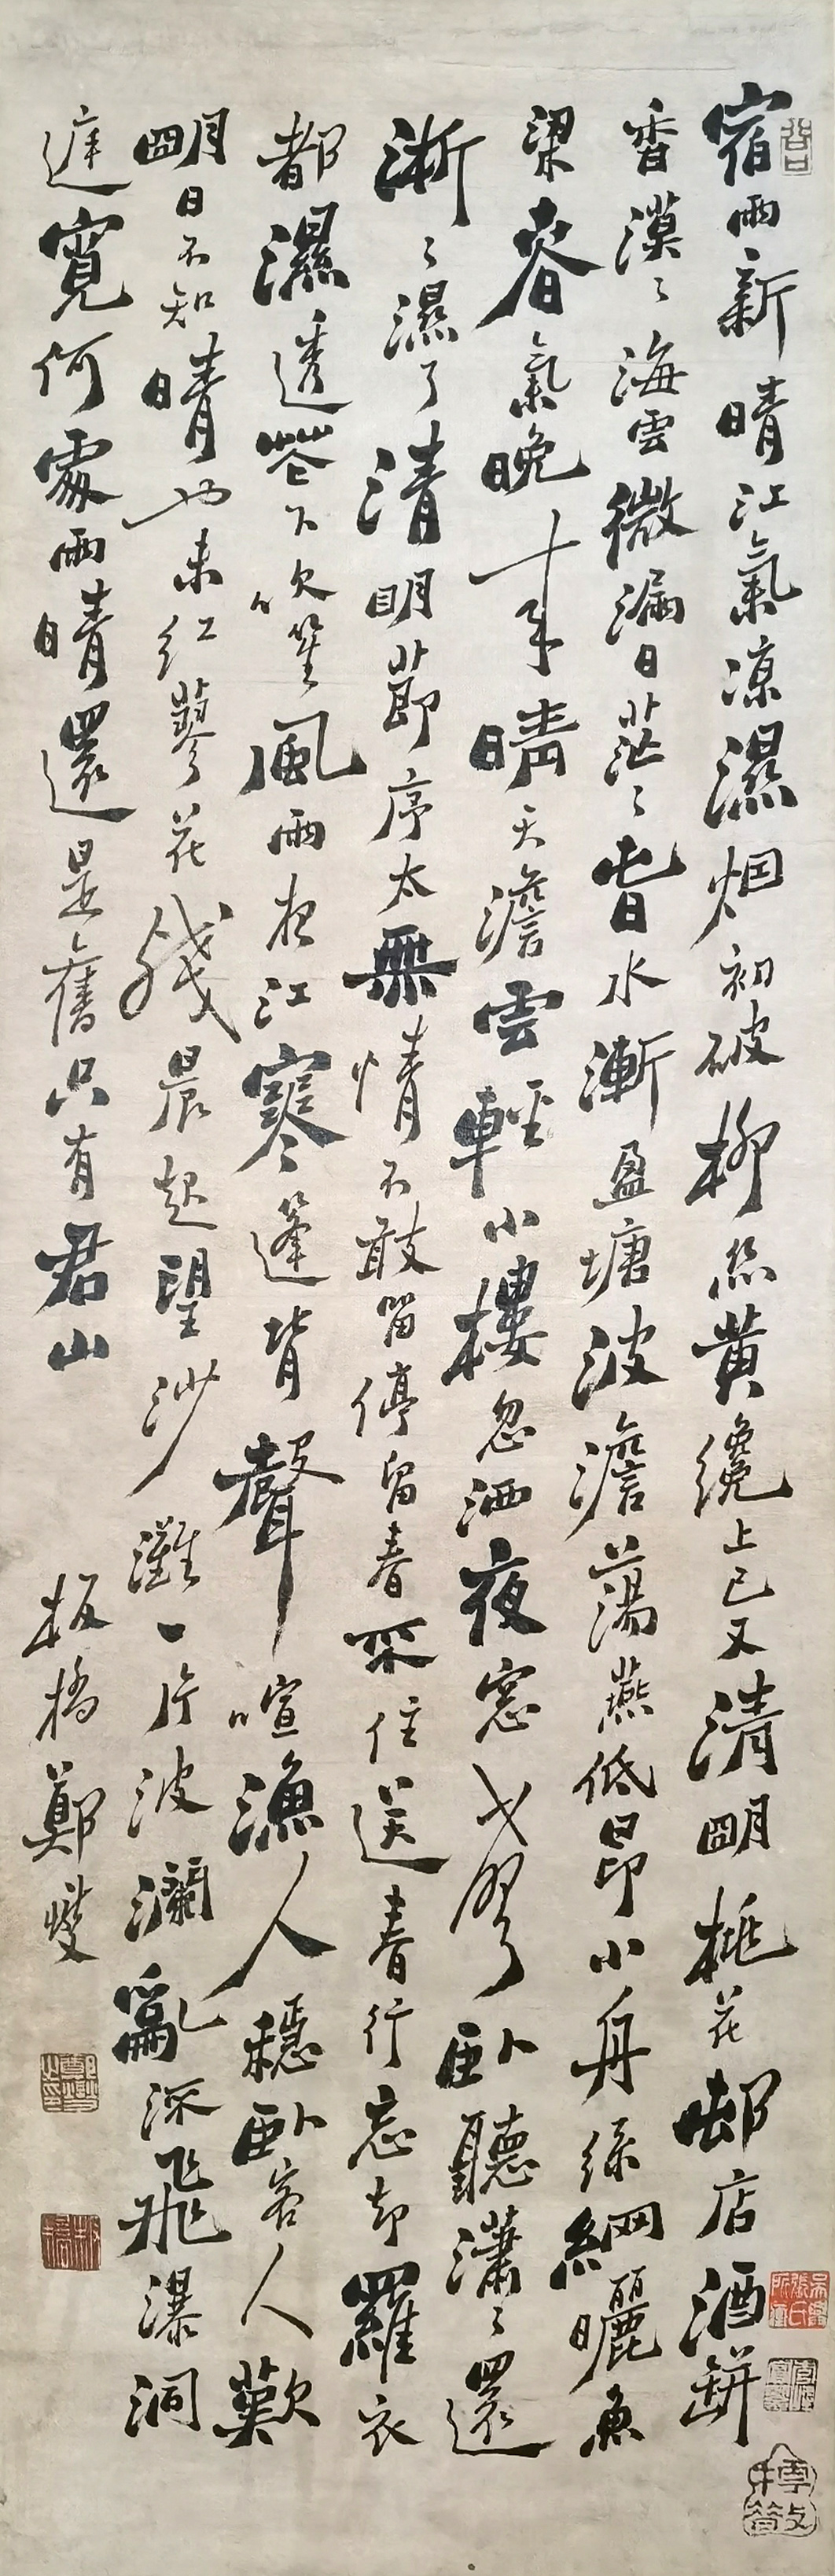 宿雨新晴江氣凉濕烟初破柳絲黃纔上巳又清明桃花邨店酒缾
香漠〻海雲微漏日茫〻春水漸盈塘波澹蕩燕低昂小舟絲網曬魚
梁春氣晚來晴天澹雲輕小樓忽洒夜窓聲卧聽瀟〻還
淅〻濕了清明節序太無情不敢留停留春不住送春行忘却羅衣
都濕透花下吹笙風雨夜江寒篷背聲喧漁人穩卧客人歎
明日不知晴也未紅蓼花殘晨起望沙灘一片波瀾亂流飛瀑洞
庭寬何處雨晴還是舊只有君山
板橋鄭燮